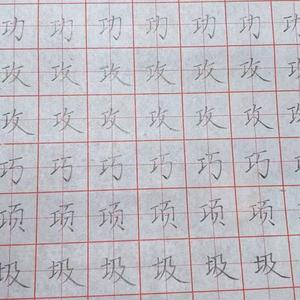 功功功功功功功
攻攻攻攻攻攻攻
攻攻攻攻攻攻攻
巧巧巧巧巧巧巧
项项项项项项项
圾圾圾圾圾圾